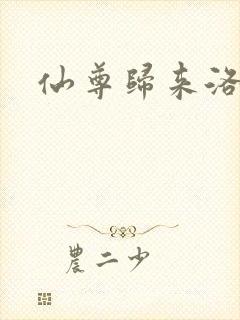 仙尊歸來洛
農二少